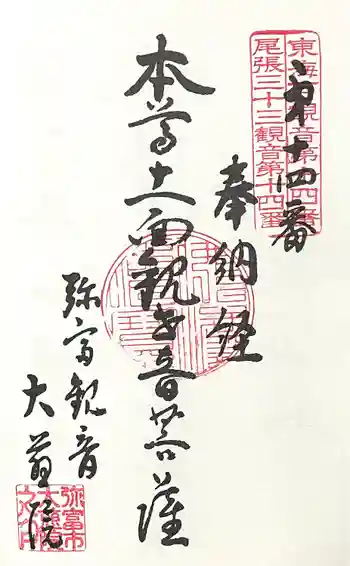 東海
観音第四番
尾張三十三観音第十四番
第十四番
奉納経
本尊十一面観世音菩薩
弥富観音
大慈院
弥富市